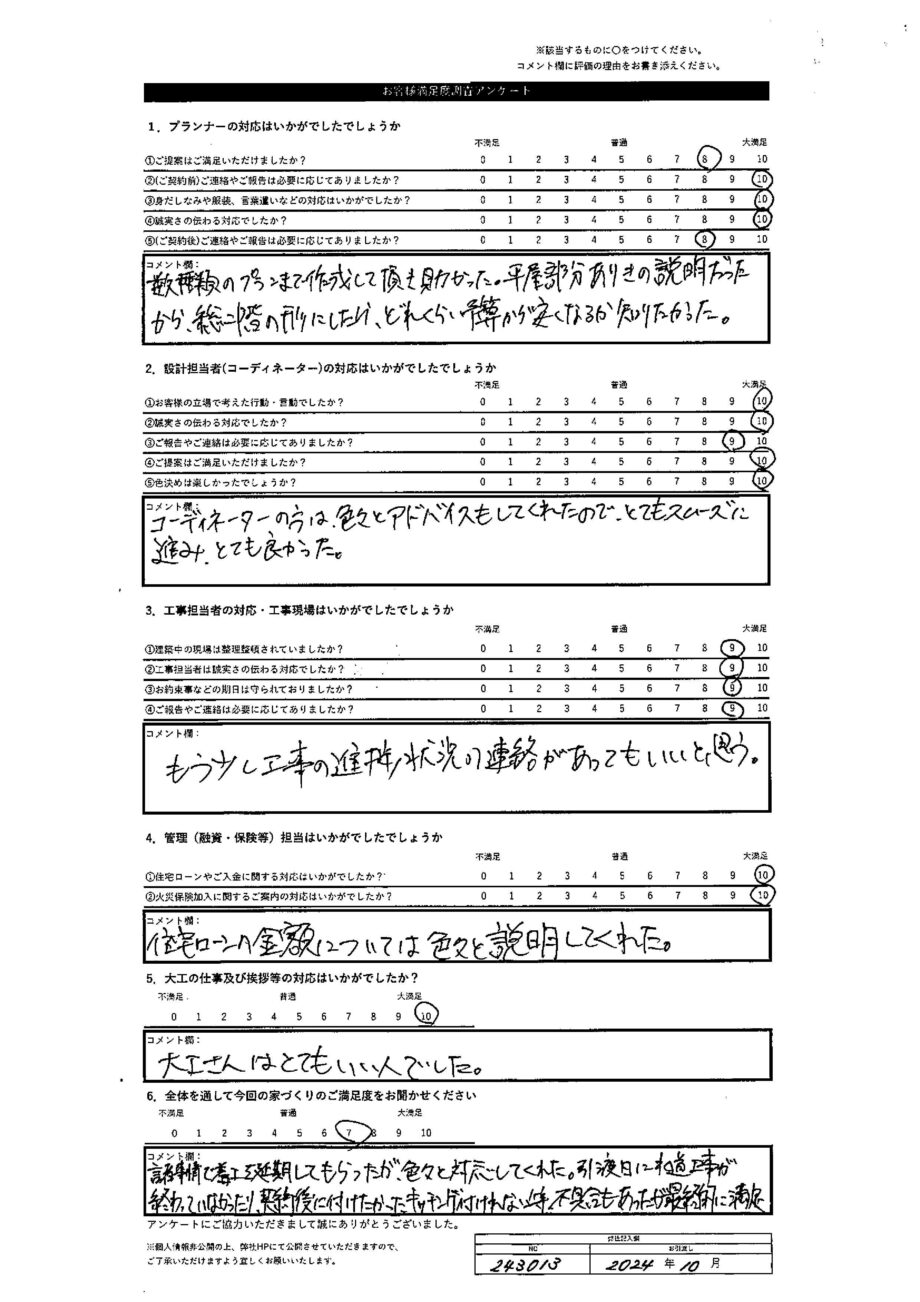 ※該当するものに○をつけてください。
コメント欄に評価の理由をお書き添えください。
お客様満足度調査アンケート
1．プランナーの対応はいかがでしたでしょうか
不満足 普通 大満足
①ご提案はご満足いただけましたか？ 0 1 2 3 4 5 6 7 8 9 10
②(ご契約前)ご連絡やご報告は必要に応じてありましたか？ 0 1 2 3 4 5 6 7 8 9 10
③身だしなみや服装、言葉遣いなどの対応はいかがでしたか？ 0 1 2 3 4 5 6 7 8 9 10
④誠実さの伝わる対応でしたか？ 0 1 2 3 4 5 6 7 8 9 10
⑤(ご契約後)ご連絡やご報告は必要に応じてありましたか？ 0 1 2 3 4 5 6 7 8 9 10
コメント欄：
数種類のプランまで作成して頂き助かった。平屋部分ありきの説明だった
から、総二階の形にしたら、どれくらい予算が安くなるか知りたかった。
2．設計担当者(コーディネーター)の対応はいかがでしたでしょうか
不満足 普通 大満足
①お客様の立場で考えた行動・言動でしたか？ 0 1 2 3 4 5 6 7 8 9 10
②誠実さの伝わる対応でしたか？ 0 1 2 3 4 5 6 7 8 9 10
③ご報告やご連絡は必要に応じてありましたか？ 0 1 2 3 4 5 6 7 8 9 10
④ご提案はご満足いただけましたか？ 0 1 2 3 4 5 6 7 8 9 10
⑤色決めは楽しかったでしょうか？ 0 1 2 3 4 5 6 7 8 9 10
コメント欄：
コーディネーターの方は、色々とアドバイスもしてくれたので、とてもスムーズに
進み、とても良かった。
3．工事担当者の対応・工事現場はいかがでしたでしょうか
不満足 普通 大満足
①建築中の現場は整理整頓されていましたか？ 0 1 2 3 4 5 6 7 8 9 10
②工事担当者は誠実さの伝わる対応でしたか？ 0 1 2 3 4 5 6 7 8 9 10
③お約束事などの期日は守られておりましたか？ 0 1 2 3 4 5 6 7 8 9 10
④ご報告やご連絡は必要に応じてありましたか？ 0 1 2 3 4 5 6 7 8 9 10
コメント欄：
もう少し工事の進捗状況の連絡があってもいいと思う。
4．管理（融資・保険等）担当はいかがでしたでしょうか
不満足 普通 大満足
①住宅ローンやご入金に関する対応はいかがでしたか？ 0 1 2 3 4 5 6 7 8 9 10
②火災保険加入に関するご案内の対応はいかがでしたか？ 0 1 2 3 4 5 6 7 8 9 10
コメント欄：
住宅ローンの金額については色々と説明してくれた。
5．大工の仕事及び挨拶等の対応はいかがでしたか？
不満足 普通 大満足
0 1 2 3 4 5 6 7 8 9 10
コメント欄：
大工さんはとてもいい人でした。
6．全体を通して今回の家づくりのご満足度をお聞かせください
不満足 普通 大満足
0 1 2 3 4 5 6 7 8 9 10
コメント欄：
諸事情で着工を延期してもらったが、色々と対応してくれた。引渡日に 工事が
終わっていなかったり、契約後に付けたかった 付けれない 不具合もあったが最終的に満足
アンケートにご協力いただきまして誠にありがとうございました。
※個人情報非公開の上、弊社HPにて公開させていただきますので、
ご了承いただけますよう宜しくお願いいたします。
弊社記入欄
NO お引渡し
243013 2024 年 10 月